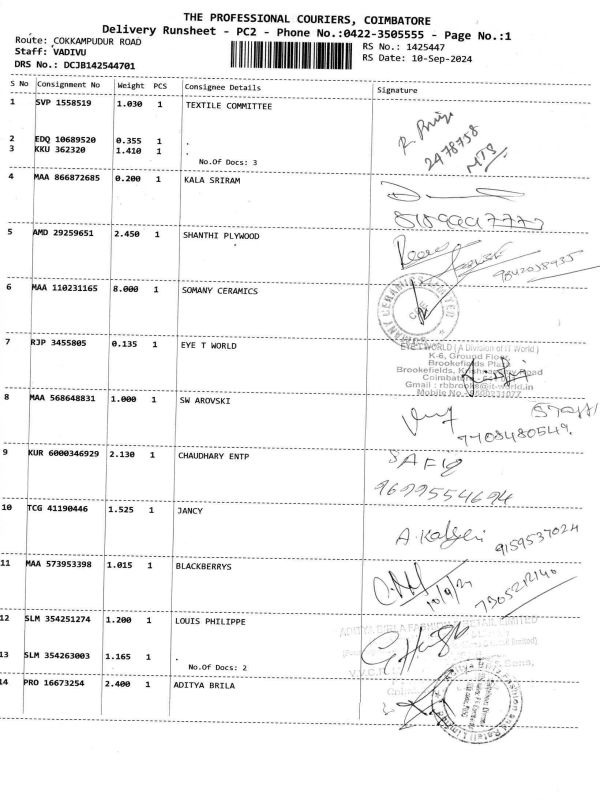 THE PROFESSIONAL COURIERS, COIMBATORE
Delivery Runsheet - PC2 - Phone No.:0422-3505555 - Page No.:1
Route: COKKAMPUDUR ROAD
RS No.: 1425447
Staff: VADIVU
RS Date: 10-Sep-2024
DRS No.: DCJB142544701
S No Consignment No Weight PCS Consignee Details Signature
1 SVP 1558519 1.030 1 TEXTILE COMMITTEE
2 EDQ 10689520 0.355 1 .
3 KKU 362320 1.410 1 .
No.Of Docs: 3
2478758
MTS
4 MAA 866872685 0.200 1 KALA SRIRAM
5 AMD 29259651 2.450 1 SHANTHI PLYWOOD
6 MAA 110231165 8.000 1 SOMANY CERAMICS
7 RJP 3455805 0.135 1 EYE T WORLD
EYE T WORLD ( A Division of IT World )
K-6, Ground Floor,
Brookefields Plaza
Brookefields, Road
Gmail : rbbrooke@it-world.in
Mobile No
8 MAA 568648831 1.000 1 SW AROVSKI
7708480549.
9 KUR 6000346929 2.130 1 CHAUDHARY ENTP
SAFIQ
9699554694
10 TCG 41190446 1.525 1 JANCY
9159537024
11 MAA 573953398 1.015 1 BLACKBERRYS
10/9/24
7305212140
12 SLM 354251274 1.200 1 LOUIS PHILIPPE
13 SLM 354263003 1.165 1 .
No.Of Docs: 2
14 PRO 16673254 2.400 1 ADITYA BRILA